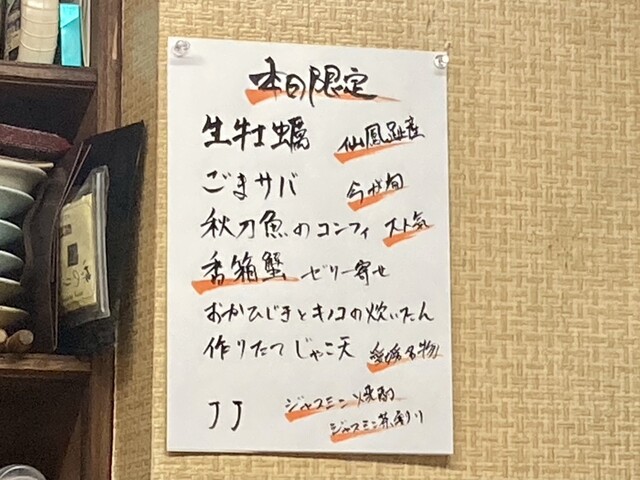 本日限定
生牡蠣 仙鳳趾産
ごまサバ 今が旬
秋刀魚のコンフィ 大人気
香箱蟹 ゼリー寄せ
おかひじきとキノコの炊いたん
作りたて じゃこ天 愛媛名物
JJ ジャスミン焼酎
ジャスミン茶割り